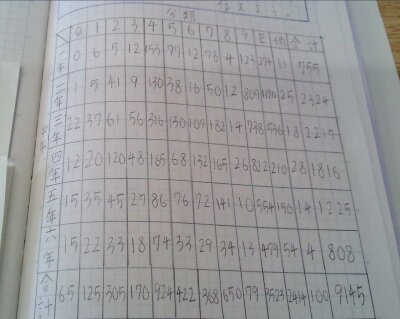 分類
0 1 2 3 4 5 6 7 8 9 E 他 合計
一年 0 6 5 12 153 77 12 78 4 123 274 11 755
二年 1 5 41 9 130 38 16 50 12 805 1170 25 2324
三年 22 37 61 56 316 130 107 182 14 738 556 18 2217
四年 12 20 120 48 165 68 132 165 26 822 210 28 1816
五年 15 35 45 27 86 76 72 141 10 554 150 14 1225
六年 15 22 33 18 74 33 29 34 13 479 54 4 808
合計 65 125 305 170 924 422 368 650 79 3523 2414 100 9145